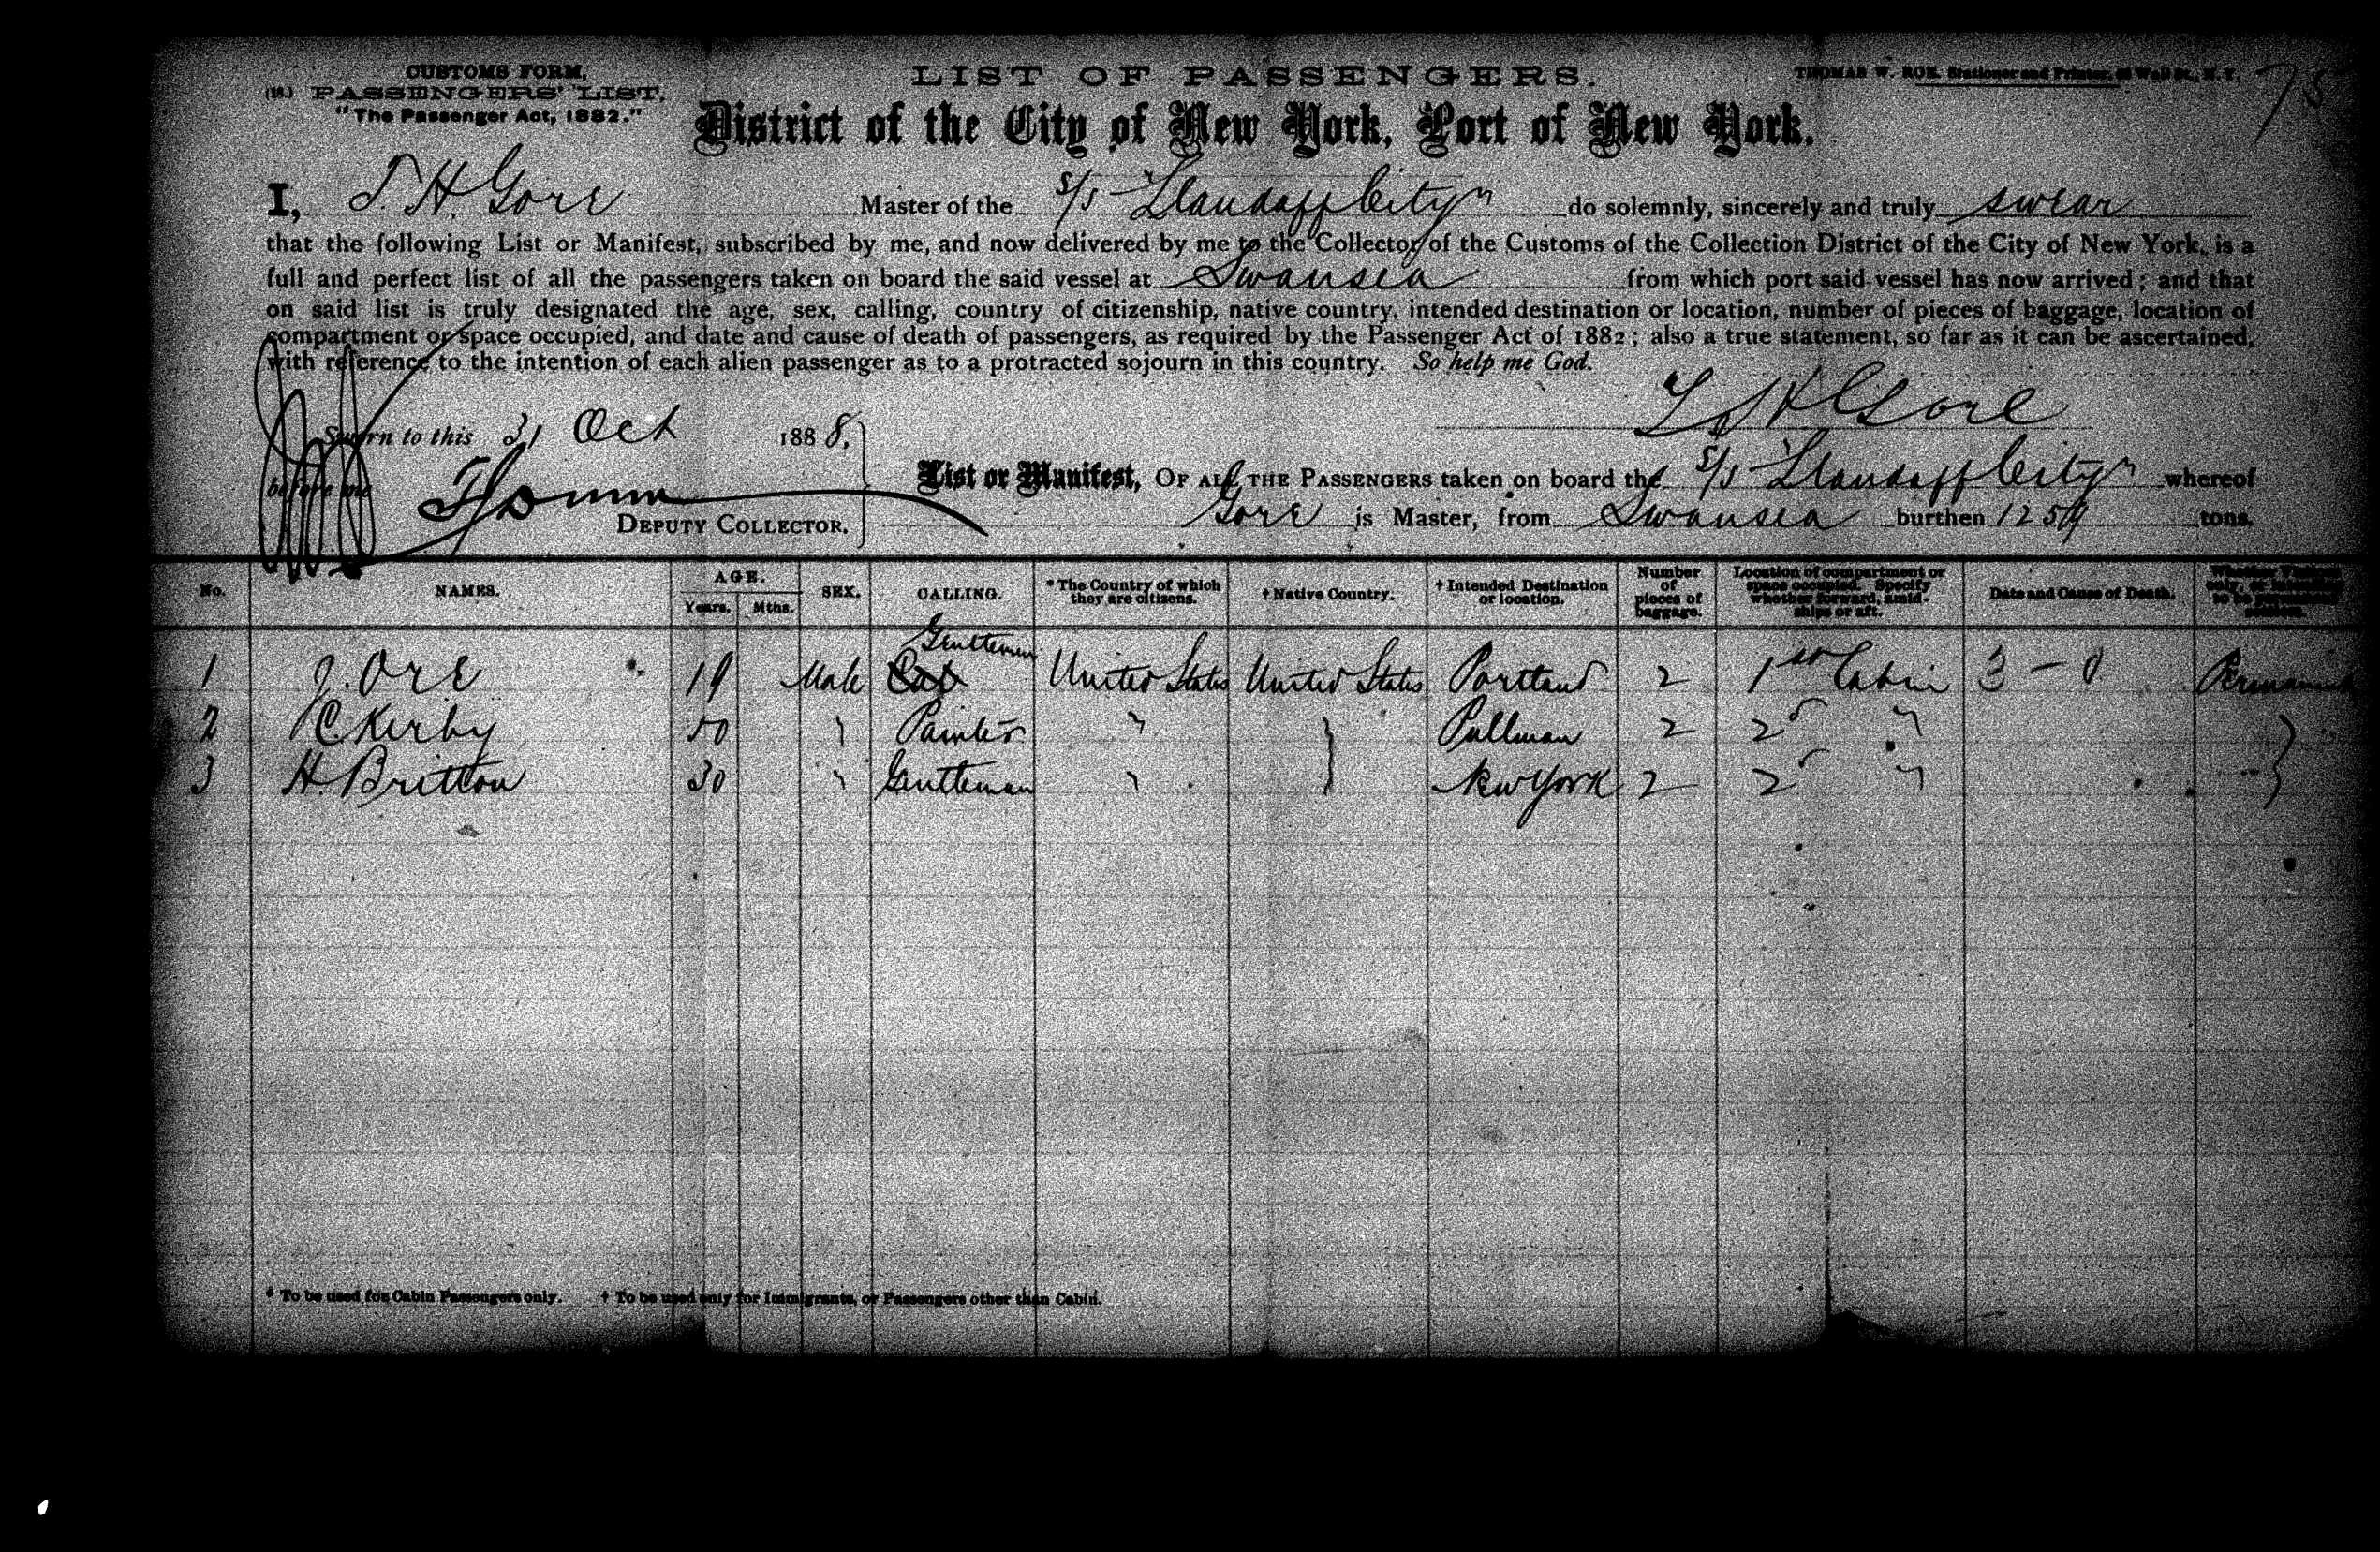 CUSTOMS FORM,
PASSENGERS' LIST.
"The Passenger Act, 1882."
LIST OF PASSENGERS.
THOMAS W. ROE, Stationer and Printer, Wall St., N. Y.
75
District of the City of New York, Port of New York.
I, T. H. Gore Master of the S/S "Llandaff City" do solemnly, sincerely and truly swear
that the following List or Manifest, subscribed by me, and now delivered by me to the Collector of the Customs of the Collection District of the City of New York, is a
full and perfect list of all the passengers taken on board the said vessel at Swansea from which port said vessel has now arrived; and that
on said list is truly designated the age, sex, calling, country of citizenship, native country, intended destination or location, number of pieces of baggage, location of
compartment or space occupied, and date and cause of death of passengers, as required by the Passenger Act of 1882; also a true statement, so far as it can be ascertained,
with reference to the intention of each alien passenger as to a protracted sojourn in this country. So help me God.
T H Gore
Sworn to this 31 Oct 1888.
before me
DEPUTY COLLECTOR.
List or Manifest, OF ALL THE PASSENGERS taken on board the S/S "Llandaff City" whereof
Gore is Master, from Swansea burthen 1259 tons.
No. NAMES. AGE. Years. Mths. SEX. CALLING. *The Country of which they are citizens. †Native Country. †Intended Destination or location. Number of pieces of baggage. Location of compartment or space occupied. Specify whether forward, amidships or aft. Date and Cause of Death.
1 J. Ore 19 Male Gentleman United States United States Portland 2 1st Cabin 3 - 0 Permanent
2 C Kerby 50 " Painter " Pullman 2 2d "
3 H Britton 30 " Gentleman " New York 2 2d "
* To be used for Cabin Passengers only. † To be used only for Immigrants, or Passengers other than Cabin.